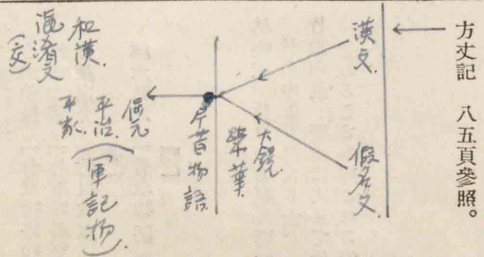 方丈記 八五頁參照。
漢文
假名文
大鏡
榮華
今昔物語
保元
平治
平家
(軍記物)
和漢
混淆文
(交)